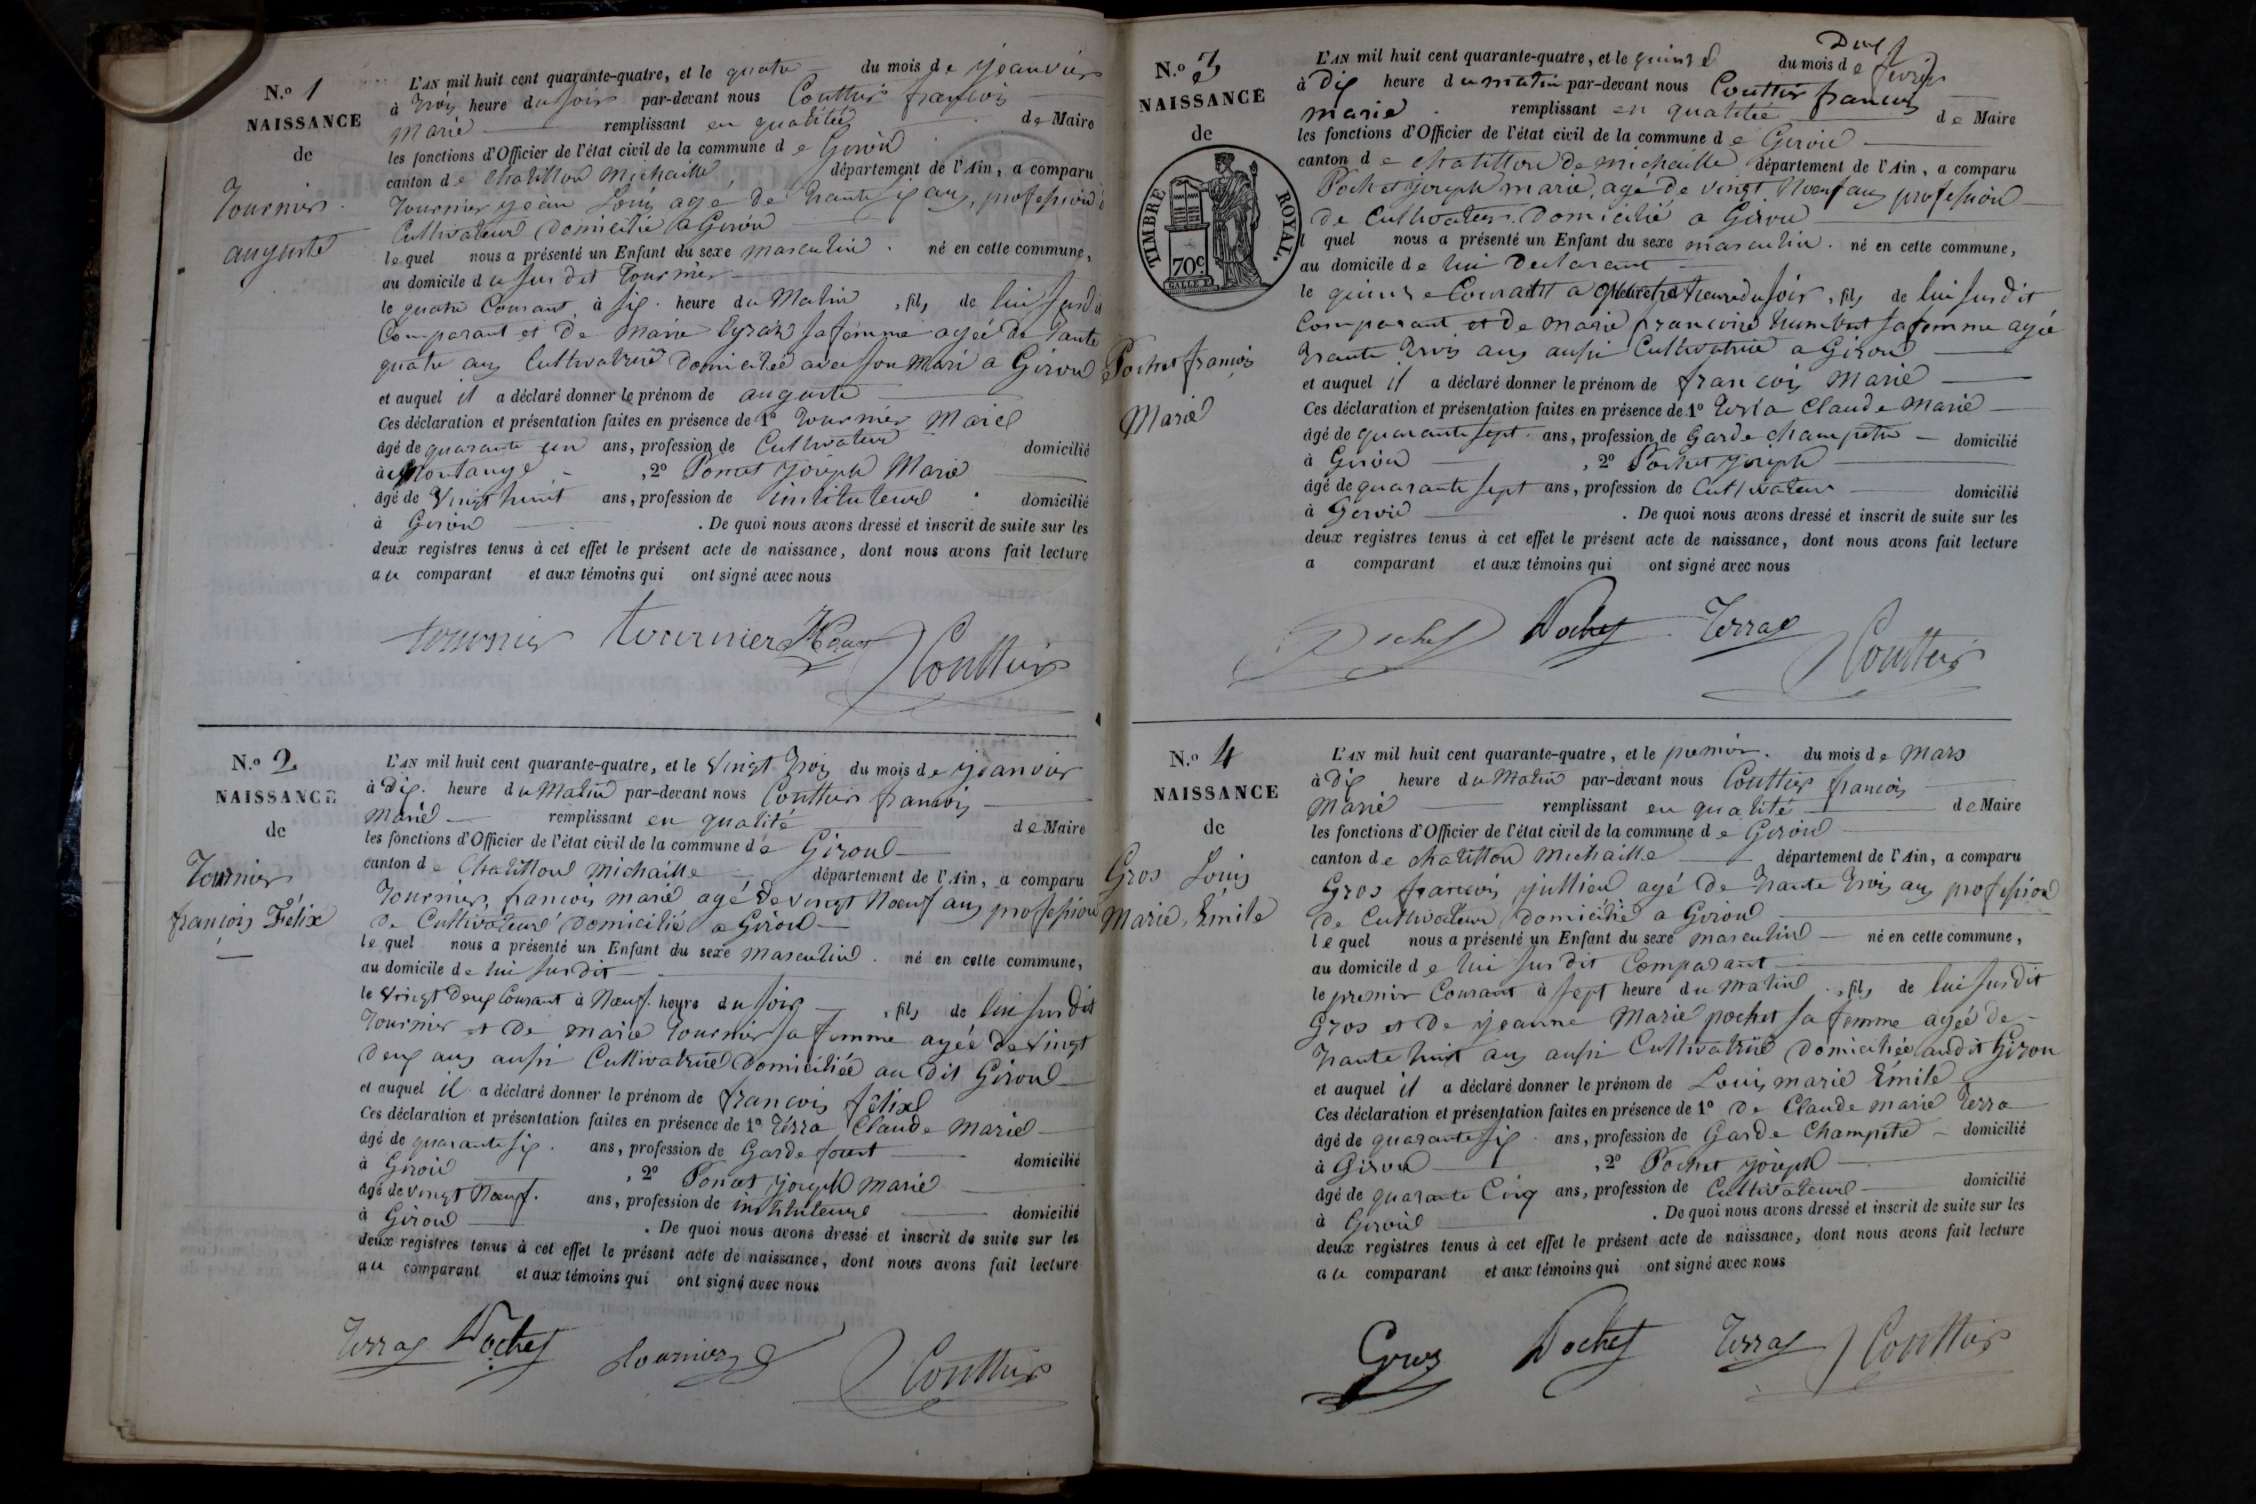 N.o 1
NAISSANCE
de
Tournier
auguste
L'AN mil huit cent quarante-quatre, et le quatre du mois de jeanvier
à trois heure du soir par-devant nous Couttier françois
Marie remplissant en qualitée de Maire
les fonctions d'Officier de l'état civil de la commune de Giron
canton de Chatillon Michaille département de l'Ain, a comparu
Tournier jean Louis agé de trante ans, profession de
Cultivateur domicilié a Giron
lequel nous a présenté un Enfant du sexe masculin . né en cette commune,
au domicile du sus dit Tournier
le quatre Courant à six heure du Matin , fils de lui susdit
Comparant et de Marie sa femme agée de trante
quatre ans Cultivatrice domiciliée avec son Mari a Giron
et auquel il a déclaré donner le prénom de auguste
Ces déclaration et présentation faites en présence de 1o Tournier Marie
âgé de quarante un ans, profession de Cultivateur domicilié
à Montange , 2o Poncet joseph Marie
âgé de vingt huit ans, profession de instituteur domicilié
à Giron . De quoi nous avons dressé et inscrit de suite sur les
deux registres tenus à cet effet le présent acte de naissance, dont nous avons fait lecture
au comparant et aux témoins qui ont signé avec nous
tournier tournier Couttier
N.o 2
NAISSANCE
de
Tournier
françois Félix
L'AN mil huit cent quarante-quatre, et le vingt trois du mois de jeanvier
à dix heure du Matin par-devant nous Couttier françois
Marie remplissant en qualité de Maire
les fonctions d'Officier de l'état civil de la commune de Giron
canton de Chatillon Michaille département de l'Ain, a comparu
Tournier, françois marie agé de vingt Nœuf ans profession
de Cultivateur domicilié a Giron
lequel nous a présenté un Enfant du sexe Masculin . né en cette commune,
au domicile de lui sus dit
le vingt deux Courant à Nœuf heure du soir , fils de lui sus dit
Tournier et de marie Tournier sa femme agée de vingt
deux ans aussi Cultivatrice domiciliée au dit Giron
et auquel il a déclaré donner le prénom de françois félix
Ces déclaration et présentation faites en présence de 1o Terra Claude Marie
âgé de quarante six ans, profession de Garde fouet domicilié
à Giron , 2o Poncet joseph marie
âgé de vingt Nœuf ans, profession de instituteur domicilié
à Giron . De quoi nous avons dressé et inscrit de suite sur les
deux registres tenus à cet effet le présent acte de naissance, dont nous avons fait lecture
au comparant et aux témoins qui ont signé avec nous
Terraz Pochet Tournier Couttier
N.o 3
NAISSANCE
de
TIMBRE ROYAL.
70c.
Pochet françois
Marie
L'AN mil huit cent quarante-quatre, et le quinze du mois de fevrier
à dix heure du matin par-devant nous Couttier françois
marie remplissant en qualitée de Maire
les fonctions d'Officier de l'état civil de la commune de Giron
canton de chatillon de michaille département de l'Ain, a comparu
Pochet joseph marie, agé de vingt Nœuf ans profession
de Cultivateur domicilié a Giron
l quel nous a présenté un Enfant du sexe masculin . né en cette commune,
au domicile de lui declarant
le quinze Courant a heure du soir , fils de lui susdit
Comparant et de marie françoise humbert sa femme agée
trante trois ans aussi Cultivatrice a Giron
et auquel il a déclaré donner le prénom de françois Marie
Ces déclaration et présentation faites en présence de 1o Terra Claude Marie
âgé de quarante sept ans, profession de Garde champetre domicilié
à Giron , 2o Pochet joseph
âgé de quarante sept ans, profession de Cultivateur domicilié
à Giron . De quoi nous avons dressé et inscrit de suite sur les
deux registres tenus à cet effet le présent acte de naissance, dont nous avons fait lecture
a comparant et aux témoins qui ont signé avec nous
Pochet Pochet Terraz Couttier
N.o 4
NAISSANCE
de
Gros Louis
Marie, Émile
L'AN mil huit cent quarante-quatre, et le premier du mois de Mars
à dix heure du Matin par-devant nous Couttier françois
Marie remplissant en qualité de Maire
les fonctions d'Officier de l'état civil de la commune de Giron
canton de chatillon Michaille département de l'Ain, a comparu
Gros françois jullien agé de trante trois ans profession
de Cultivateur domicilié a Giron
lequel nous a présenté un Enfant du sexe masculin né en cette commune,
au domicile de lui sus dit Comparant
le premier Courant à sept heure du Matin , fils de lui susdit
Gros et de jeanne Marie pochet sa femme agée de
trante huit ans aussi Cultivatrice domiciliée audit Giron
et auquel il a déclaré donner le prénom de Louis marie Émile
Ces déclaration et présentation faites en présence de 1o de Claude marie Terra
âgé de quarante six ans, profession de Garde Champetre domicilié
à Giron , 2o Pochet joseph
âgé de quarante Cinq ans, profession de Cultivateur domicilié
à Giron . De quoi nous avons dressé et inscrit de suite sur les
deux registres tenus à cet effet le présent acte de naissance, dont nous avons fait lecture
au comparant et aux témoins qui ont signé avec nous
Gros Pochet Terraz Couttier